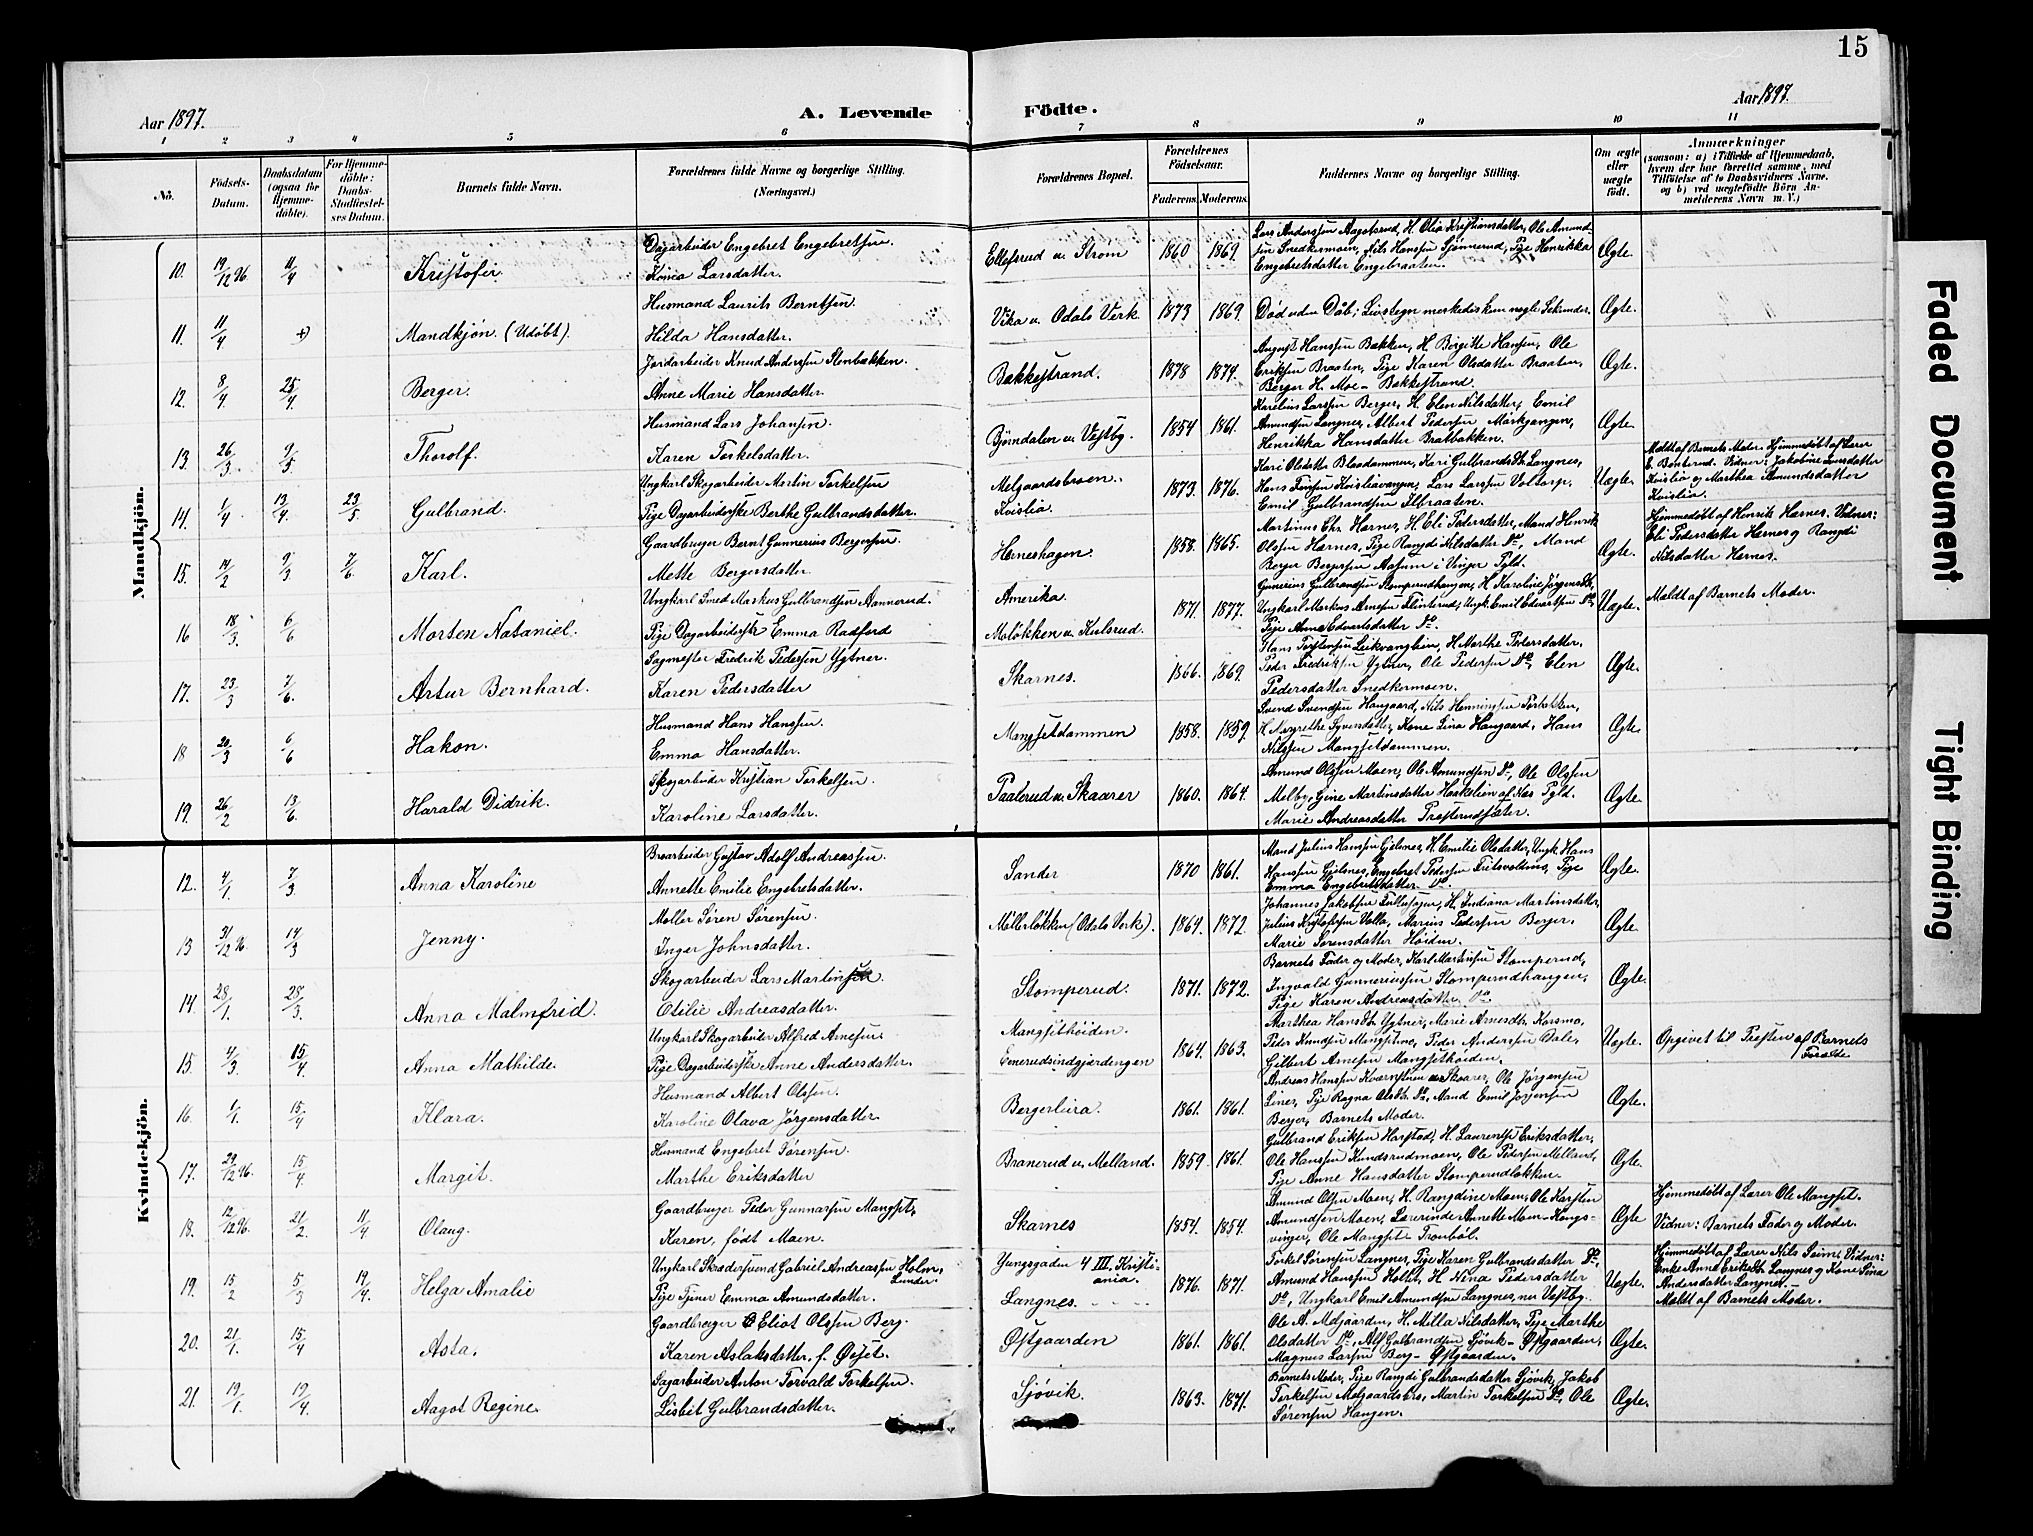 15
Aar 1897.
A. Levende
Födte.
Aar 1897.
1 2 3 4 5 6 7 8 9 10 11
No.
Födsels-Datum.
Daabsdatum (ogsaa for Hjemme-döbte).
For Hjemme-döbte: Daabs-Stadfæstel-ses Datum.
Barnets fulde Navn.
Forældrenes fulde Navne og borgerlige Stilling. (Næringsvei.)
Forældrenes Bopæl.
Forældrenes Födselsaar.
Faderens. Moderens.
Faddernes Navne og borgerlige Stilling.
Om ægte eller uægte födt.
Anmærkninger
(saasom: a) i Tilfælde af Hjemmedaab, hvem der har forrettet samme, med Tilföielse af to Daabsvidners Navne, og b) ved uægtefödte Börn Anmelderens Navn m. V.)
Mandkjön.
10. 19/12 96 11/4 Kristofer.
Dagarbeider Engebret Engebretsen.
Larsdatter.
Ellefsrud u. Strøm 1860 1869.
Lars Anderssen Aagotsrud, H. Olia Kristiansdatter, Ole Amund-
sen Snedkermoen, Nils Hanssen Sjønnerud, Pige Henrikka
Engebretsdatter Engebraaten.
Ægte.
11. 11/4 +) Mandkjøn. (Udøbt).
Husmand Laurits Berntsen.
Hilda Hansdatter.
Vika u. Odals Verk 1873 1869.
Død uden Dåb; Livstegn merkedes kun nogle Sekunder.
Ægte.
12. 8/4 25/4 Berger.
Jordarbeider Knud Anderssen Stenbakken.
Anne Marie Hansdatter.
Bakkestrand. 1878 1874.
August Hanssen Bakken, H. Birgitte Hansen, Ole
Eriksen Braaten, Pige Karen Olsdatter Braaten,
Berger H. Moe - Bakkestrand.
Ægte.
13. 26/3 9/5 Thorolf.
Husmand Lars Johansen.
Karen Torkelsdatter.
Bjørndalen u. Vestby. 1854 1861.
Karelius Larssen Berger, H. Elen Nilsdatter, Emil
Amundsen Langnes, Albert Pedersen Mørkgangen,
Henrikka Hansdatter Bratbakken.
Ægte.
14. 1/4 13/4 23/5 Gulbrand.
Ungkarl Skogarbeider Martin Torkelsen
Pige Dagarbeiderske Berthe Gulbrandsdatter.
Melgaardsbroen.
Kvislia. 1873. 1876.
Kari Olsdatter Blaadammen, Kari Gulbrands Dtr. Langnes,
Hans Kvisliavangen, Lars Larssen Veltorp,
Emil Gulbrandsen Ilbraaten.
Uægte.
Meldt af Barnets Moder. Hjemmedøbt af Lærer
E. Bonterud. Vidner: Jakobine Larsdatter
Kvislia og Marthea Amundsdatter
Kvislia.
15. 14/2 9/3 7/6 Karl.
Gaardbruger Bernt Gunnerius Bergersen.
Mette Bergersdatter.
Herneshagen. 1858. 1865.
Martinus Chr. Hernes, H. Eli Pedersdatter, Mand Henrik
Olssen Hernes, Pige Rangdi Nilsdatter Do, Mand
Berger Bergersen Aasum i Vinger Pgld.
Ægte.
Hjemmedøbt af Henrik Hernes. Vidner:
Eli Pedersdatter Hernes og Rangdi
Nilsdatter Hernes.
16 18/3. 6/6 Morten Nataniel.
Ungkarl Smed Markus Gulbrandsen Aannerud.
Pige Dagarbeiderske Emma Radford
Amerika.
Moløkken u. Kulsrud. 1871. 1877.
Gunerius Gulbrandsen Stomperudhaugen, H. Karoline Jørgensdtr,
Ungkarl Markus Arnesen Flinterud, Ungk. Emil Edvartsen Do,
Pige Anna Edvartsdatter Do.
Uægte.
Meldt af Barnets Moder.
17. 23/3 7/6. Artur Bernhard.
Sagmester Fredrik Pedersen Ygtner.
Karen Pedersdatter
Skarnes. 1866. 1869.
Hans Torstensen Leikvanglien, H. Marthe Pedersdatter,
Peder Fredriksen Ygtner, Ole Pedersen Do, Elen
Pedersdatter Snedkermoen.
Ægte.
18 20/3 6/6 Hakon.
Husmand Hans Hanssen.
Emma Hansdatter.
Mangsetdammen 1858. 1859.
Svend Svendsen Haugaard, Nils Henningsen
H. Margrethe Syversdatter, Kone Lina Haugaard, Hans
Nilssen Mangsetdammen.
Ægte.
19. 26/2 13/6. Harald Didrik.
Skogarbeider Kristian Torkelsen.
Karoline Larsdatter.
Paalerud u. Skaarer 1860. 1864.
Amund Olssen Moen, Ole Amundsen Do, Ole Olssen
Melby, Gine Martinsdatter af Nes Pgld.
Marie Andreasdatter Præsterudsæter.
Ægte.
Kvindekjön.
12. 4/1 7/3 Anna Karoline
Broarbeider Gustav Adolf Andreassen.
Annette Emilie Engebretsdatter.
Sander 1870 1861.
Mand Julius Hanssen Gjelsnes, H. Emilie Olsdatter, Ungk. Hans
Hanssen Gjelsnes, Engebret Pedersen Pige
Emma Engebretsdatter Do.
Ægte.
13 31/12 96 14/3 Jenny.
Møller Søren Sørensen.
Inger Johnsdatter.
Møllerløkken (Odals Verk). 1864. 1872.
Johannes Jakobsen H. Indiana Martinsdatter,
Julius Kristofersen Volla, Marius Pedersen Berger.
Marie Sørensdatter Høiden.
Ægte.
14. 28/1. 28/3. Anna Malmfrid.
Skogarbeider Lars Martinsen
Otilie Andreasdatter.
Stomperud. 1871. 1872.
Barnets Fader og Moder, Karl Martinsen Stomperud,
Ingvald Gunneriussen Stomperudhaugen,
Pige Karen Andreasdatter Do
Ægte.
15. 4/3. 15/4. Anna Mathilde.
Ungkarl Skogarbeider Alfred Arnesen.
Pige Dagarbeiderske Anne Andersdatter.
Mangsethøiden.
Emerudsindgjærdengen 1864. 1863.
Marthea Hansdtr. Ygtner, Marie Arnesdtr. Korsmo,
Peder Knudsen Mangsetmo, Peder Anderssen Dale,
Gilbert Arnesen Mangsethøiden.
Uægte.
Opgivet til Presten af Barnets
Forældre
16. 1/1. 15/4 Klara.
Husmand Albert Olssen.
Karoline Olava Jørgensdatter.
Bergerleira. 1861. 1861.
Andreas Hanssen Kværnstuen u. Skaarer, Ole Jørgensen
Liner, Pige Ragna Olsdtr. Do, Mand Emil Jørgensen
Berger, Barnets Moder.
Ægte.
17. 29/12 96. 15/4. Margit.
Husmand Engebret Sørensen.
Marthe Eriksdatter
Branerud u. Melland. 1859. 1861.
Gulbrand Eriksen Harstad, H. Laurentse Eriksdatter,
Ole Hanssen Kundsrudmoen, Ole Pedersen Melland,
Pige Anne Hansdatter Stomperudløkken.
Ægte.
18. 12/12 96. 21/2. 11/4 Olaug.
Gaardbruger Peder Gunnarsen Mangset,
Karen, født Moen.
Skarnes 1854. 1854.
Amund Olsen Moen, H. Rangdine Moen, Ole Karsten
Amundsen Moen, Lærerinde Annette Moen - Kongs-
vinger, Ole Mangset - Tronbøl.
Ægte
Hjemmedøbt af Lærer Ole Mangset.
Vidner: Barnets Fader og Moder.
19. 15/2 5/3 19/4. Helga Amalie
Ungkarl Skrædersvend Gabriel Andreassen Holm,
Lunder.
Pige Tjener Emma Amundsdatter.
Yungsgaden 4 III. Kristi-
ania.
Langnes. 1876. 1871.
Torkel Sørensen Langnes, Pige Karen Gulbrandsdatter Do,
Amund Hanssen Holtet, H. Nina Pedersdatter
Do, Ungkarl Emil Amundsen Langnes, Vestby.
Uægte.
Hjemmedøbt af Lærer Nils Seim, Vidner:
Enke Anne Eriksdtr. Langnes og Kone Lina
Andersdatter Langnes.
Meldt af Barnets Moder.
20. 21/1. 15/4 Asta.
Gaardbruger Eliot Olssen Berg.
Karen Aslaksdatter, f. Øiset.
Østgaarden 1861. 1861.
Ole A. Melgaarden, H. Milla Nilsdatter, Pige Marthe
Olsdatter Do, Alf Gulbrandsen Sjøvik - Østgaarden,
Magnus Larsen Berg - Østgaarden.
Ægte.
21. 19/1. 19/4. Aagot Regine.
Sagarbeider Anton Torvald Torkelsen.
Lisbet Gulbrandsdatter.
Sjøvik. 1863. 1871.
Barnets Moder, Pige Rangdi Gulbrandsdatter Sjøvik, Jakob
Torkelsen Melgaardsbro, Martin Torkelsen Do, Ole
Sørensen Haugen.
Ægte.
Faded Document
Tight Binding